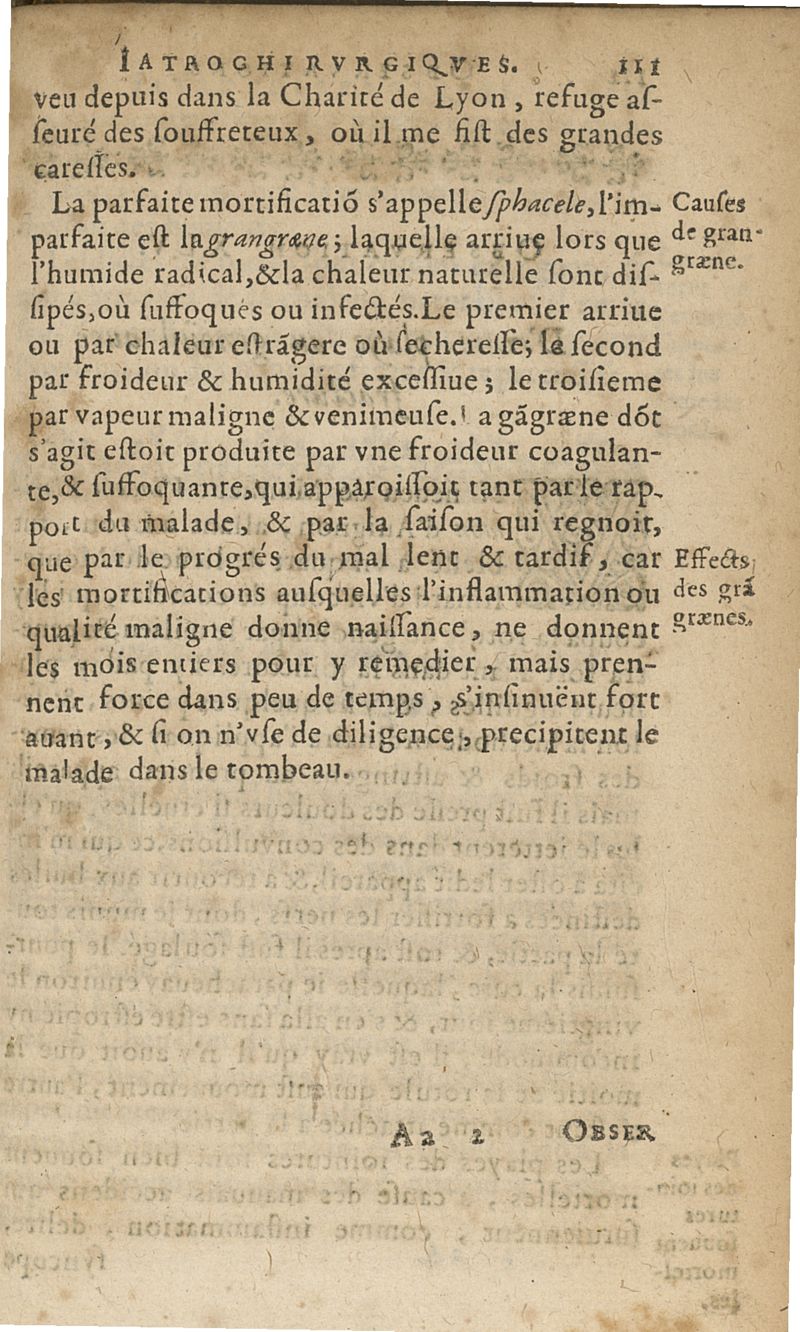 IATROCHIRVRGIQVES. 111
veu depuis dans la Charité de Lyon, refuge aſ-
ſeuré des ſouffreteux, où il me fiſt des grandes
careſſes.
La parfaite mortificatiõ s'appelle ſphacele, l'im-
parfaite eſt la grangræne; laquelle arriue lors que
l'humide radical, & la chaleur naturelle ſont diſ-
ſipés, où ſuffoqués ou infectés. Le premier arriue
ou par chaleur eſtrãgere où ſechereſſe; le ſecond
par froideur & humidité exceſſiue; le troiſieme
par vapeur maligne & venimeuſe. a gãgræne dõt
s'agit eſtoit produite par vne froideur coagulan-
te, & ſuffoquante, qui apparoiſſoit tant par le rap-
port du malade, & par la ſaiſon qui regnoit,
que par le progrés du mal lent & tardif, car
les mortifications auſquelles l'inflammation ou
qualité maligne donne naiſſance, ne donnent
les mois entiers pour y remedier, mais pren-
nent force dans peu de temps, s'inſinuënt fort
auant, & ſi on n'vſe de diligence, precipitent le
malade dans le tombeau.
Cauſes
de gran-
græne.
Effects
des grã
grænes.
Aa 2 OBSER